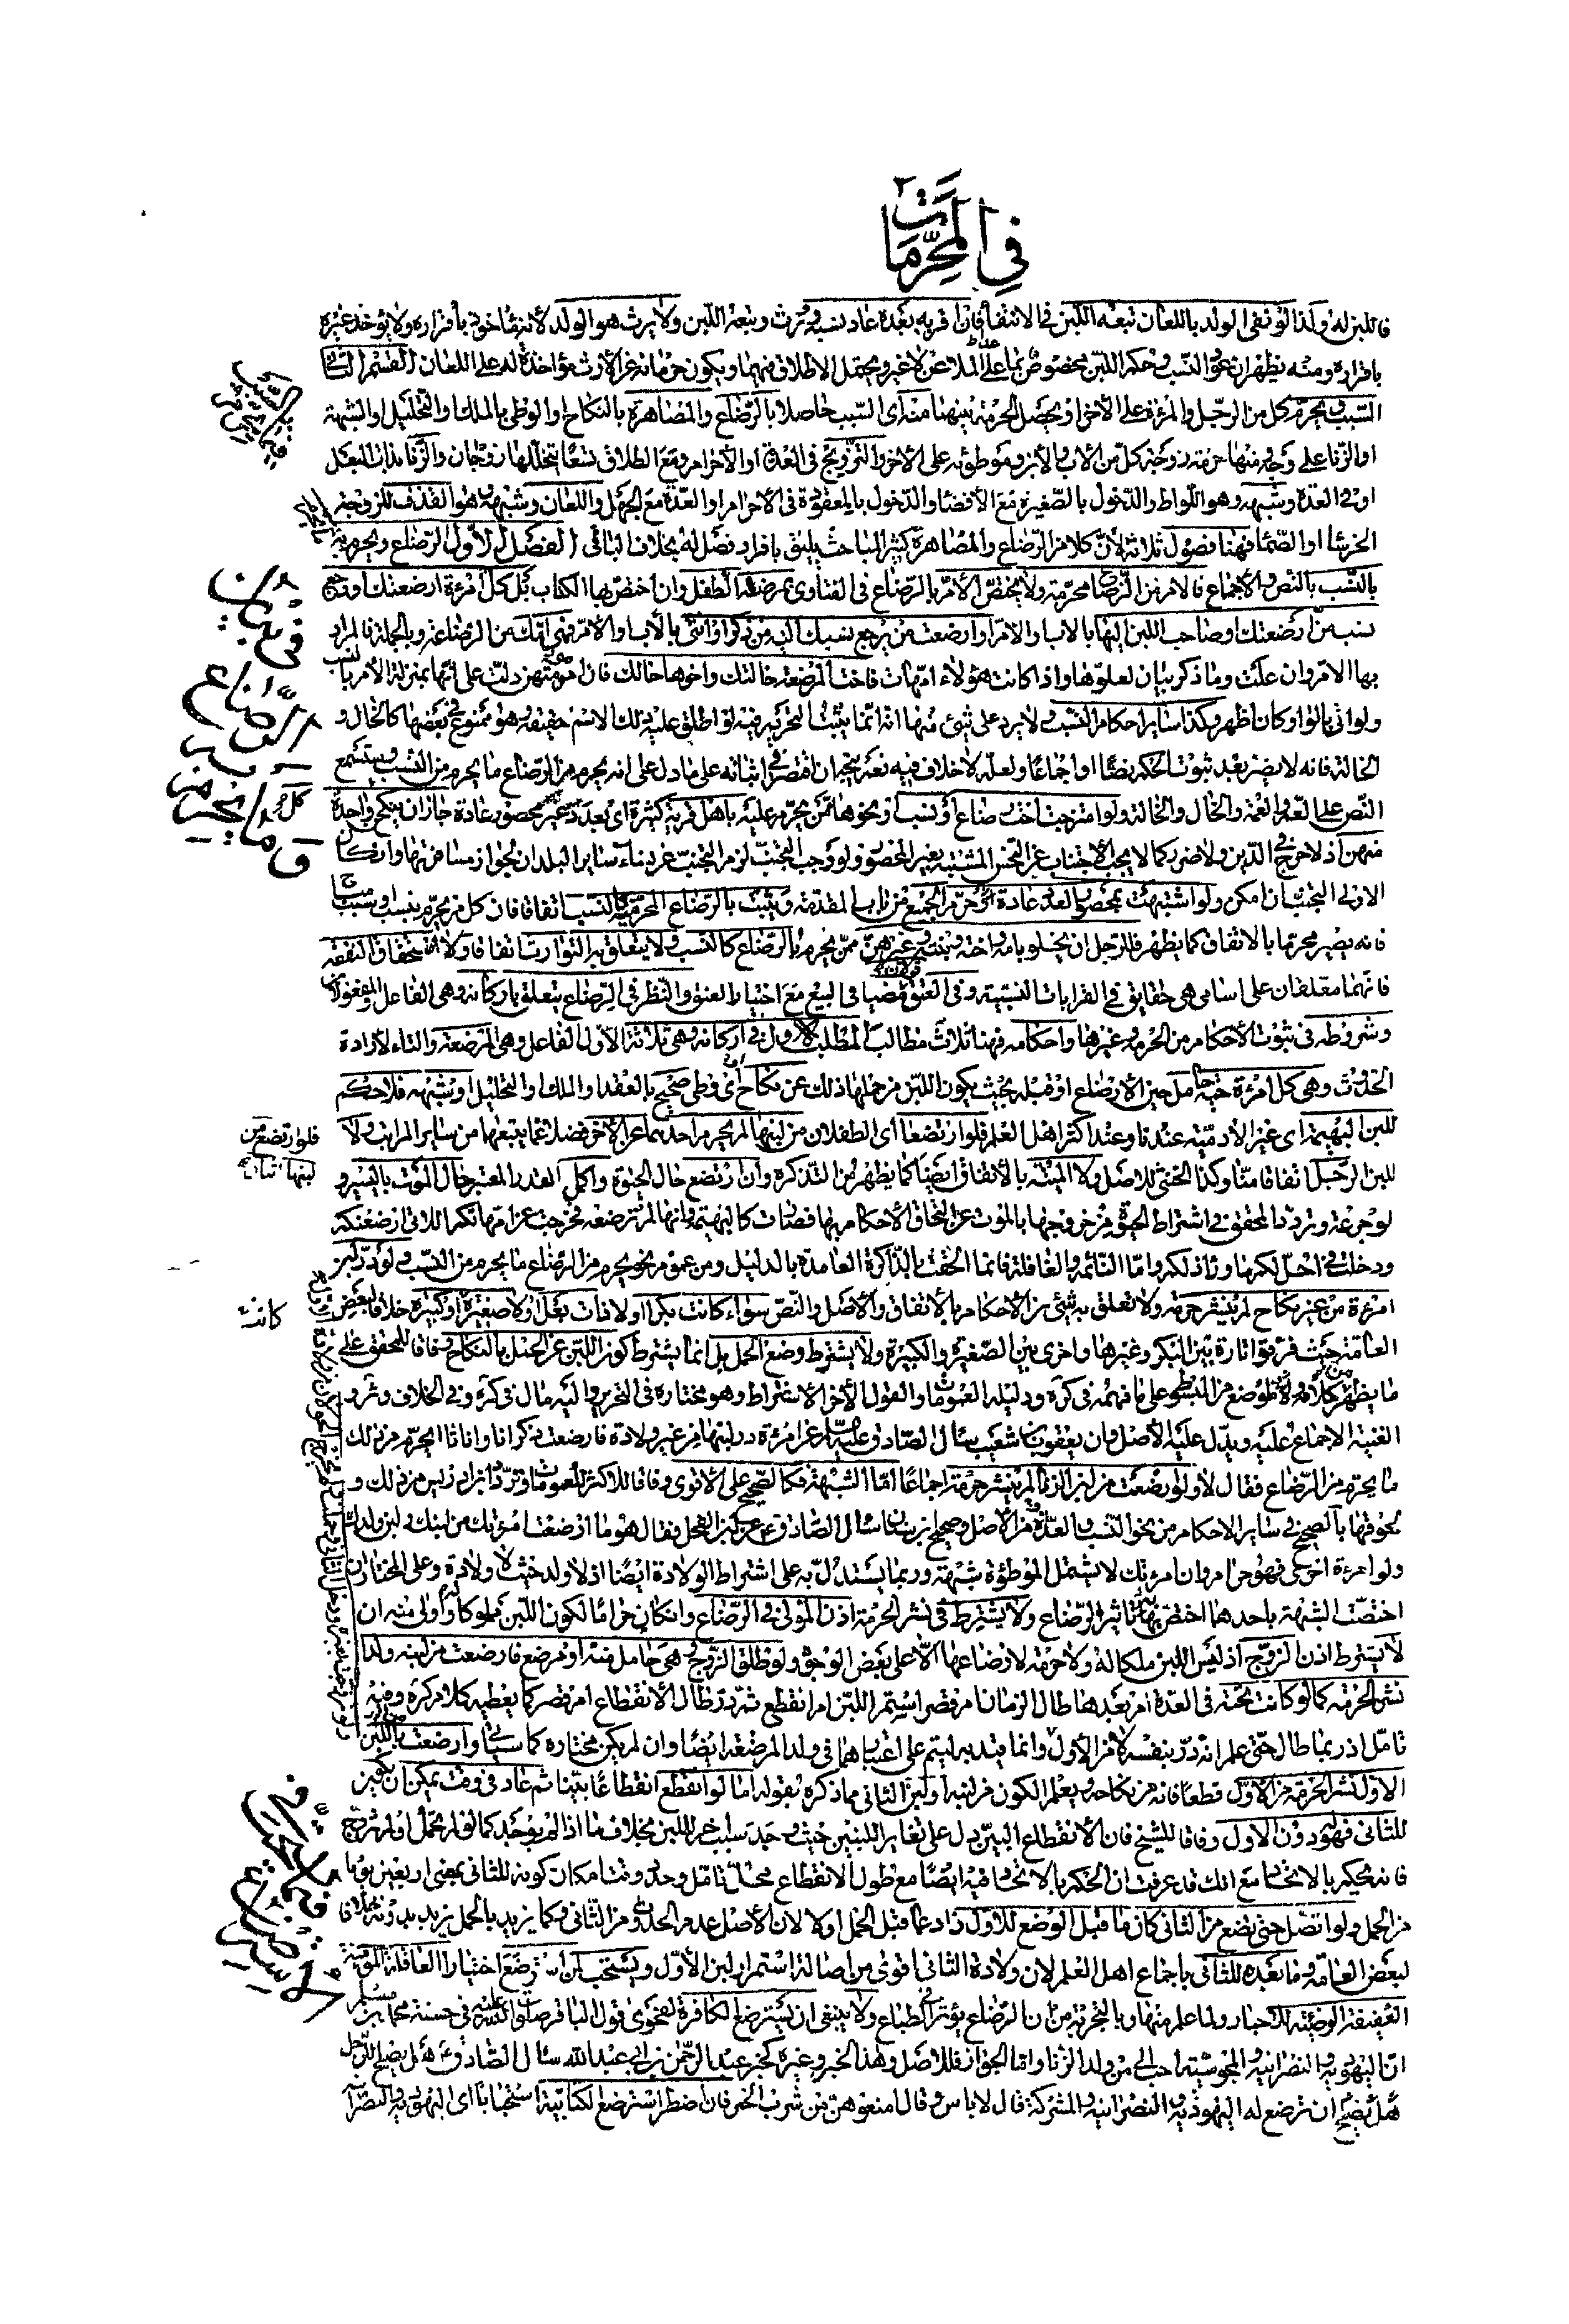 في المحرمات
فاللبن له ولذا لو نفى الولد باللعان تبعه اللبن في الانتفاء فان اقر به بعده عاد نسبه ويرث وتبعه اللبن ولا يرث هو الولد لانتفاء اخوته باقراره ولا يؤخذ غيره
باقراره ومنه يظهر ان عود النسب وحكم اللبن مخصوصان بما على الملاعن لا غير ويحتمل الاطلاق فيهما ويكون حرمانه عن الارث مؤاخذة له على اللعان القسم الثاني
السبب ويحرم كل من الرجل والمرءة على الاخر او يحصل الحرمة بينهما منه اى السبب حاصلا بالرضاع والمصاهرة بالنكاح او الوطى بالملك او التحليل او الشبهة
او الزنا على وجه منها حرمة زوجة كل من الاب والابن وموطوئه على الاخر والتزويج في العدة او الاحرام ومع الطلاق تسعا يتخللها زوجان والزنا بذات البعل
او في العدة وشبهه وهو اللواط والدخول بالصغيرة مع الافضاء والدخول بالمعقودة في الاحرام او العدة مع الجهل واللعان وشبهه وهو القذف للزوجة
الخرساء او الصماء فهنا فصول ثلاثة لان كلا من الرضاع والمصاهرة كثير المباحث يليق بافراد فصل له بخلاف الباقي الفصل الاول الرضاع ويحرم به
بالنسب بالنص والاجماع فالام من الرضاع محرمة ولا يختص الام بالرضاع في الفتاوى بمرضعة الطفل وان اختص بها الكتاب بل كل امرءة ارضعتك او رجع
نسب من ارضعتك او صاحب اللبن اليها بالاب او الام او ارضعت من يرجع نسبك اليه من ذكر او انثى بالاب او الام فهي امك من الرضاعة وبالجملة فالمراد
بها الام وان علت وما ذكر بيان لعلوها واذا كانت هؤلاء امهات فاخت المرضعة خالتك واخوها خالك فان امومتهن دلت على انها بمنزلة الام بالنسب
ولو اتى بالواو كان اظهر وكذا ساير احكام النسب ولا يرد على شيء منها انه انما يثبت التحريم فيه لو اطلق عليه ذلك الاسم حقيقة وهو ممنوع في بعضها كالخال و
الخالة فانه لا يضر بعد ثبوت الحكم نصا او اجماعا ولعله لا خلاف فيه نعم يتجه ان اقتصر في اثباته على ما دل على انه يحرم من الرضاع ما يحرم من النسب وستسمع
النص على العم والعمة والخال والخالة ولو امتزجت اخت رضاع او نسب او نحوها ممن يحرم عليه باهل قرية كثيرة اى بعدد غير محصور عادة جاز ان ينكح واحدة
منهن اذ لا حرج في الدين ولا ضرر كما لا يجب الاجتناب عن النجس المشتبه بغير المحصور ولو وجب التجنب لزم التجنب عن نساء ساير البلدان لجواز مسافرتها وان كان
الاولى التجنب ان امكن ولو اشتبهت بمحصور العدد عادة حرم الجميع من باب المقدمة ويثبت بالرضاع المحرمية كالنسب اتفاقا فان كل من يحرم بنسب او سبب
فانه يصير محرما بالاتفاق كما يظهر فللرجل ان يخلو بامه واخته وبنته وغيرهن ممن يحرم بالرضاع كالنسب ولا يتعلق به التوارث اتفاقا ولا استحقاق النفقة
فانهما معلقان على اسامي هي حقايق في القرابات النسبية وفي العتق قولان مضيا في البيع مع اختيار العتق والنظر في الرضاع يتعلق باركانه وهى الفاعل والمفعول
وشروطه في ثبوت الاحكام من الحرمة وغيرها واحكامه فهنا ثلاث مطالب المطلب الاول في اركانه وهى ثلاثة الاول الفاعل وهى المرضعة والتاء لارادة
الحدوث وهى كل امرءة حية حامل حين الارضاع او قبله بحيث يكون اللبن من حملها ذلك عن نكاح اى وطى صحيح بالعقد او الملك او التحليل او شبهة فلا حكم
للبن البهيمة اى غير الادمية عندنا وعند اكثر اهل العلم فلو ارتضعا اى الطفلان من لبنها لم يحرم احدهما على الاخر فضلا عما يتبعها من ساير المراتب ولا
للبن الرجل اتفاقا منا وكذا الخنثى للاصل ولا الميتة بالاتفاق ايضا كما يظهر من التذكرة وان ارتضع حال الحيوة واكمل العدد المعتبر حال الموت باليسير و
لو جرعة وتردد المحقق في اشتراط الحيوة من خروجها بالموت عن التحاق الاحكام بها فصارت كالبهيمة وانها لم ترضعه فخرجت عن امهاتكم اللاتي ارضعنكم
ودخلت في احل لكم ما وراء ذلكم واما النائمة والغافلة فانما الحقت بالذاكرة العامدة بالدليل ومن عموم نحو يحرم من الرضاع ما يحرم من النسب ولو در لبن
امرءة من غير نكاح لم ينشر حرمة ولا تعلق به شيء من الاحكام بالاتفاق والاصل والنص سواء كانت بكرا او لا ذات بعل او لا صغيرة او كبيرة خلافا لبعض
العامة حيث فرق تارة بين البكر وغيرها واخرى بين الصغيرة والكبيرة ولا يشترط وضع الحمل بل انما يشترط كون اللبن عن الحمل بالنكاح وفاقا للمحقق على
ما يظهر من كلامه ولموضع من المبسوط على ما فهمه في كره ودليله العمومات والقول الاخر الاشتراط وهو مختاره في التحرير واليه مال في كره وفي الخلاف و ئر و
الغنية الاجماع عليه ويدل عليه الاصل وان يعقوب بن شعيب سال الصادق عليه السلام عن امرءة در لبنها من غير ولادة فارضعت ذكرانا واناثا ايحرم من ذلك
ما يحرم من الرضاع فقال لا ولو ارضعت من لبن الزنا لم ينشر حرمة اجماعا اما الشبهة فكالصحيح على الاقوى وفاقا للاكثر للعمومات وتردد ابن ادريس من ذلك و
لحوقها بالصحيح في ساير الاحكام من نحو النسب والعدة ومن الاصل وصحيح ابن سنان سال الصادق ع عن لبن الفحل فقال هو ما ارضعت امرءتك من لبنك ولبن ولدك
ولد امرءة اخرى فهو حرام وان امرءتك لا يشمل الموطوءة شبهة وربما يستدل به على اشتراط الولادة ايضا اذ لا ولد حيث لا ولادة وعلى المختار ان
اختصت الشبهة باحدهما اختص به تاثير الرضاع ولا يشترط في نشر الحرمة اذن المولى في الرضاع وان كان حراما لكون اللبن مملوكا له واولى منه ان
لا يشترط اذن الزوج اذ ليس اللبن ملكا له ولا حرمة لارضاعها الا على بعض الوجوه ولو طلق الزوج وهى حامل منه او مرضع فارضعت من لبنه ولدا
نشر الحرمة كما لو كانت تحته في العدة ام بعدها طال الزمان ام قصر استمر اللبن ام انقطع ثم در طال الانقطاع ام قصر كما يعطيه كلام كره وفيه
تامل اذ ربما طال حتى علم انه در بنفسه لا من الاول وانما قيد به ليتم على اعتبارهما في ولد المرضعة ايضا وان لم يكن مختاره كما سياتي وارضعت باللبن
الاول نشر الحرمة من الاول قطعا فانه من نكاحه ويعلم الكون من لبنه او لبن الثاني مما ذكره بقوله اما لو انقطع انقطاعا بينا ثم عاد في وقت يمكن ان يكون
للثاني فهو له دون الاول وفاقا للشيخ فان الانقطاع البين دل على تغاير اللبنين حيث وجد سبب اخر للبن بخلاف ما اذا لم يوجد كما لو لم تحمل او لم تتزوج
فانه يحكم بالاتحاد مع انك قد عرفت ان الحكم بالاتحاد فيه ايضا مع طول الانقطاع محل تامل وحد وقت امكان كونه للثاني بمضى اربعين يوما
من الحمل ولو اتصل حتى تضع من الثاني كان ما قبل الوضع للاول زاد عما قبل الحمل او لا لان الاصل عدم الحدوث من الثاني وكما يزيد بالحمل يزيد بدونه خلافا
لبعض العامة وما بعده للثاني باجماع اهل العلم لان ولادة الثاني اقوى من اصالة استمرار لبن الاول ويستحب ان يسترضع اختيارا العاقلة المؤمنة
العفيفة الوضيئة للاخبار ولما علم منها وبالتجربة من ان الرضاع يؤثر في الطباع ولا ينبغي ان يسترضع الكافرة لفحوى قول الباقر صلوات الله عليه في حسنة محمد بن مسلم
ان اليهودية والنصرانية والمجوسية احب الي من ولد الزنا واما الجواز فللاصل وهذا الخبر وغيره كخبر عبد الرحمن بن ابي عبد الله سال الصادق ع هل يصلح للرجل
هل يصلح ان ترضع له اليهودية والنصرانية والمشركة قال لا باس وقال امنعوهن من شرب الخمر فان اضطر استرضع الكتابية استحبابا اى اليهودية والنصرا
فيما يحرم بالسبب
في بيان
الرضاع
كل من
فلو ارتضع من
لبنها
كانت